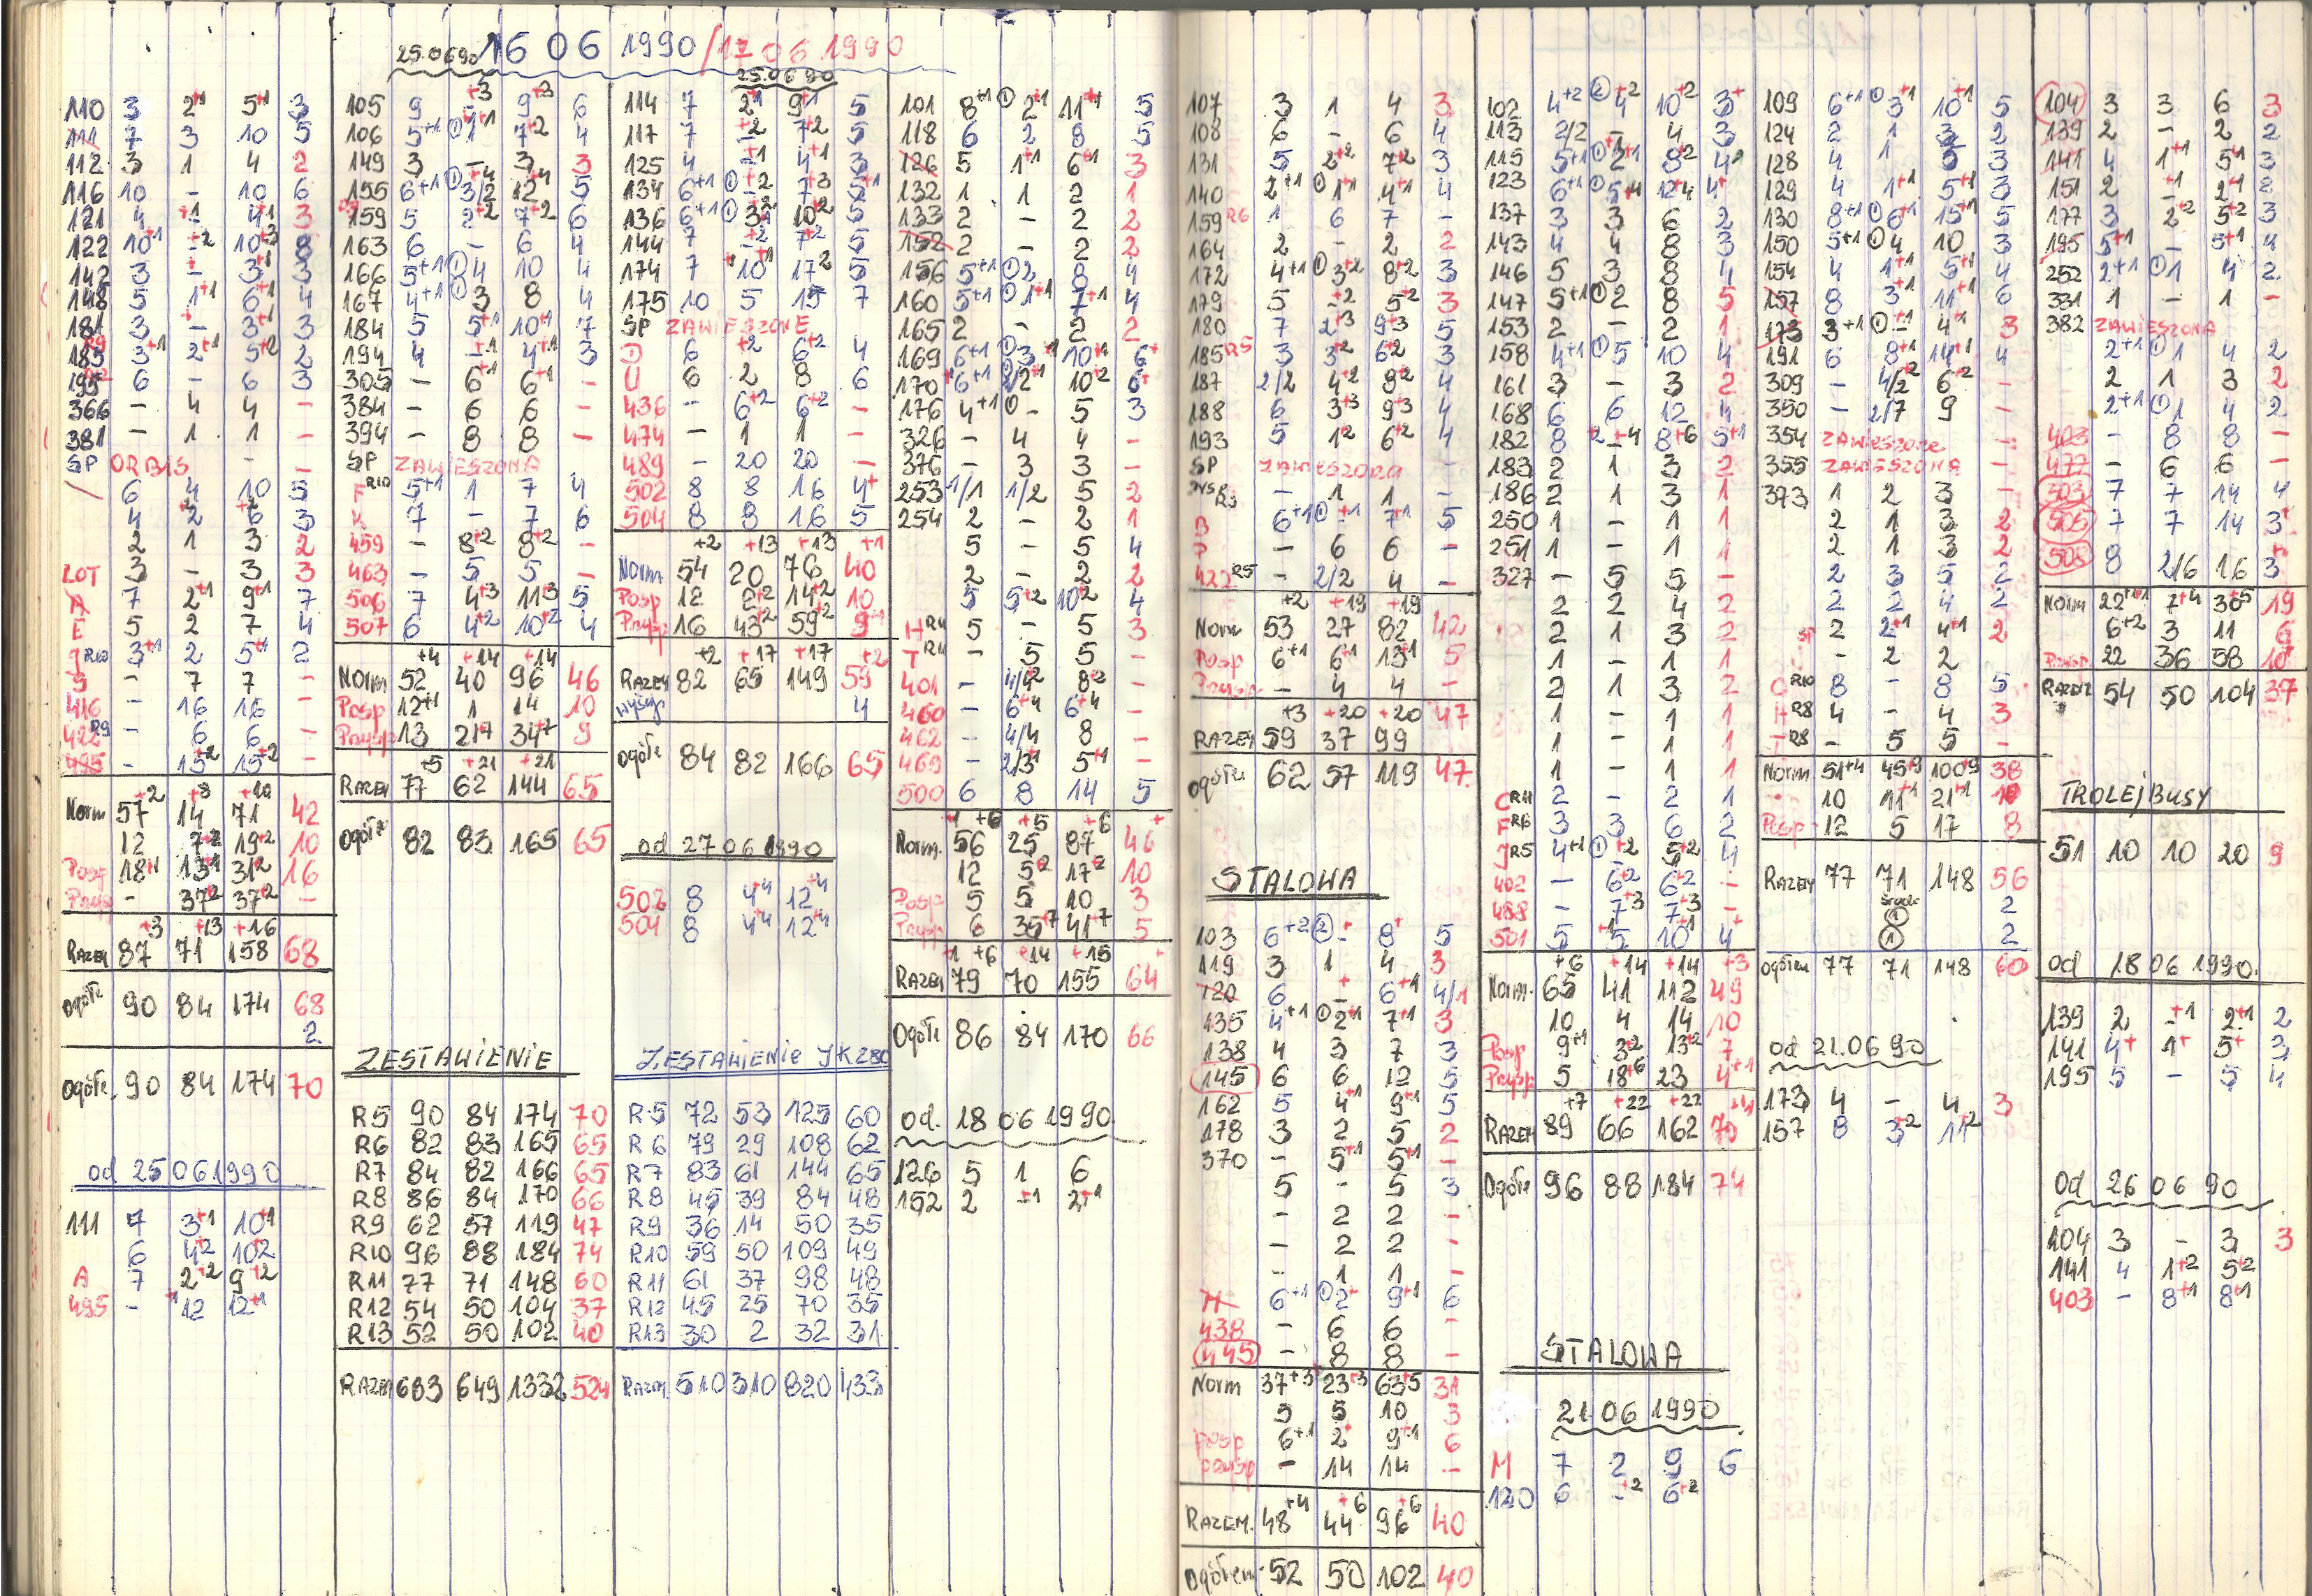 25.06.90 16 06 1990/17 06 1990
25.06.90
110 3 2+1 5+1 3
111 7 3 10 5
112 3 1 4 2
116 10 - 10 6
121 4 +1 4+1 3
122 10+1 -+2 10+3 8
142 3 - 3+1 3
148 5 1+1 6+1 4
181 3 - 3+1 3
185 R9 3+1 2+1 5+2 2
195 6 - 6 3
366 - 4 4 -
381 - 1 1 -
SP ORBIS - -
6 4 10 5
4 2 6 3
2 1 3 2
LOT 3 - 3 3
A 7 2+1 9+1 7
E 5 2 7 4
J R10 3+1 2 5+1 2
S - 7 7 -
416 - 16 16 -
422 R9 - 6 6 -
495 - 15+2 15+2 -
Norm 57+2 14+8 71+10 42
12 7+2 19+2 10
Posp 18+1 13+1 31+2 16
Przysp - 37+2 37+2 -
+3 +13 +16
RAZEM 87 71 158 68
Ogółe 90 84 174 68
2
Ogółe. 90 84 174 70
od 25 06 1990
111 7 3+1 10+1
6 4+2 10+2
A 7 2+2 9+2
495 - 12+1 12+1
105 9 +3 9+3 6
106 5+1 ① 1+1 7+2 4
149 3 - 3 3
155 6+1 ① 3/2+4 12+4 5
159 5 2+2 7+2 6
163 6 - 6 4
166 5+1 ① 4 10 4
167 4+1 ① 3 8 4
184 5 5+1 10+1 7
194 4 -+1 4+1 3
305 - 6+1 6+1 -
384 - 6 6 -
394 - 8 8 -
SP ZAWIESZONA
F R10 5+1 1 7 4
K 7 - 7 6
459 - 8+2 8+2 -
463 - 5 5 -
506 7 4+3 11+3 5
507 6 4+2 10+2 4
+4 +14 +14
Norm 52 40 96 46
Posp 12+1 1 14 10
Przysp 13 21+7 34+7 9
+5 +21 +21
RAZEM 77 62 144 65
Ogółe 82 83 165 65
ZESTAWIENIE
R5 90 84 174 70
R6 82 83 165 65
R7 84 82 166 65
R8 86 84 170 66
R9 62 57 119 47
R10 96 88 184 74
R11 77 71 148 60
R12 54 50 104 37
R13 52 50 102 40
RAZEM 683 649 1332 524
114 7 2+1 9+1 5
117 7 -+2 7+2 5
125 4 -+1 4+1 3
134 6+1 ① -+2 7+3 5+1
136 6+1 ① 3+2 10+2 5
144 7 -+2 7+2 5
174 7 10+1 17+2 5
175 10 5 15 7
SP ZAWIESZONE
6 +2 6+2 4
U 6 2 8 6
436 - 6+2 6+2 -
474 - 1 1 -
489 - 20 20 -
502 8 8 16 4+
504 8 8 16 5
+2 +13 +13 +1
Norm 54 20 76 40
Posp 12 2+2 14+2 10
Przysp 16 43+2 59+2 9+1
+2 +17 +17 +2
RAZEM 82 65 149 59
4
Ogółe 84 82 166 65
od 27 06 1990
502 8 4+4 12+4
504 8 4+4 12+4
ZESTAWIENIE JK 280
R5 72 53 125 60
R6 79 29 108 62
R7 83 61 144 65
R8 45 39 84 48
R9 36 14 50 35
R10 59 50 109 49
R11 61 37 98 48
R12 45 25 70 35
R13 30 2 32 31
RAZEM 510 310 820 433
101 8+1 ① 2+1 11+1 5
118 6 2 8 5
126 5 1+1 6+1 3
132 1 1 2 1
133 2 - 2 2
152 2 - 2 2
156 5+1 ① 2 8 4
160 5+1 ① 1+1 7+1 4
165 2 - 2 2
169 6+1 ① 3+1 10+1 6+
170 6+1 2/2+1 10+2 6+
176 4+1 ① - 5 3
326 - 4 4 -
376 - 3 3 -
253 1/1 1/2 5 2
254 2 - 2 1
5 - 5 4
2 - 2 2
5 5+2 10+2 4
H R11 5 - 5 3
T R11 - 5 5 -
401 - 4/4+2 8+2 -
460 - 6+4 6+4 -
462 - 4/4 8 -
469 - 2/3+1 5+1 -
500 6 8 14 5
+1 +6 +5 +6 +
Norm. 56 25 87 46
12 5+2 17+2 10
Posp 5 5 10 3
Przysp 6 35+7 41+7 5
+1 +6 +14 +15 +
RAZEM 79 70 155 64
Ogółe 86 84 170 66
od. 18 06 1990
126 5 1 6
152 2 -+1 2+1
107 3 1 4 3
108 6 - 6 4
131 5 2+2 7+2 3
140 2+1 ① 1+1 4+1 4
159 R6 1 6 7 -
164 2 - 2 2
172 4+1 ① 3+2 8+2 3
179 5 -+2 5+2 3
180 7 2+3 9+3 5
185 R5 3 3+2 6+2 3
187 2/2 4+2 8+2 4
188 6 3+3 9+3 4
193 5 1+2 6+2 4
SP ZAWIESZONA -
R5 - 1 1 -
B 6+1 ① -+1 7+1 5
P - 6 6 -
422 R5 - 2/2 4 -
+2 +19 +19
Norm 53 27 82 42
Posp 6+1 6+1 13+1 5
Przysp - 4 4 -
+3 +20 +20 47
RAZEM 59 37 99
Ogółe 62 57 119 47.
STALOWA
103 6+2 ② -+ 8+ 5
119 3 1 4 3
120 6 -+ 6+1 4/1
135 4+1 ① 2+1 7+1 3
138 4 3 7 3
145 6 6 12 5
162 5 4+1 9+1 5
178 3 2 5 2
370 - 5+1 5+1 -
5 - 5 3
- 2 2 -
- 2 2 -
- 1 1 -
M 6+1 ① 2+ 9+1 6
438 - 6 6 -
445 - 8 8 -
Norm 37+3 23+3 63+5 31
5 5 10 3
Posp 6+1 2+ 9+1 6
Przysp - 14 14 -
+4 +6 +6
RAZEM. 48 44 96 40
Ogółem 52 50 102 40
102 4+2 ② 4+2 10+2 3+
113 2/2 - 4 3
115 5+1 ① 2+1 8+2 4
123 6+1 ① 5+4 12+4 4+
137 3 3 6 2
143 4 4 8 3
146 5 3 8 4
147 5+1 ① 2 8 5
153 2 - 2 1
158 4+1 ① 5 10 4
161 3 - 3 2
168 6 6 12 4
182 8 2+4 8+6 5+1
183 2 1 3 2
186 2 1 3 1
250 1 - 1 1
251 1 - 1 1
327 - 5 5 -
2 2 4 2
2 1 3 2
1 - 1 1
2 1 3 2
1 - 1 1
1 - 1 1
1 - 1 1
C R11 2 - 2 1
F R6 3 3 6 2
J R5 4+1 ① +2 5+2 4
402 - 6+2 6+2 -
488 - 7+3 7+3 -
501 5 5+1 10+1 4+
+6 +14 +14 +3
Norm. 65 41 112 49
10 4 14 10
Posp 9+1 3+2 13+2 7
Przysp 5 18+6 23 4+1
+7 +22 +22 +4
RAZEM 89 66 162 70
Ogółe 96 88 184 74
STALOWA
21 06 1990
M 7 2 9 6
120 6 -+2 6+2
109 6+1 ① 3+1 10+1 5
124 2 1 3 2
128 4 1 5 3
129 4 1+1 5+1 3
130 8+1 ① 6+1 15+1 5
150 5+1 ① 4 10 3
154 4 1+1 5+1 4
157 8 3+1 11+1 6
173 3+1 ① - 4+1 3
191 6 8+1 14+1 4
309 - 4/2+2 6+2 -
350 - 2/7 9 -
354 ZAWIESZONE -
355 ZAWIESZONA -
393 1 2 3 -
2 1 3 2
2 1 3 2
2 3 5 2
2 2 4 2
SP 2 2+1 4+1 2
- 2 2
C R10 8 - 8 5
H R8 4 - 4 3
T R8 - 5 5 -
Norm 51+4 45+9 100+9 38
10 11+1 21+1 10
Posp 12 5 17 8
RAZEM 77 71 148 56
① 2
① 2
Ogółem 77 71 148 60
od 21.06 90
173 4 - 4 3
157 8 3+2 11+2
104 3 3 6 3
139 2 - 2 2
141 4 1+1 5+1 3
151 2 -+1 2+1 2
177 3 2+2 5+2 3
195 5+1 - 5+1 4
252 2+1 ① 1 4 2
331 1 - 1 -
382 ZAWIESZONA
2+1 ① 1 4 2
2 1 3 2
2+1 ① 1 4 2
403 - 8 8 -
477 - 6 6 -
503 7 7 14 4
505 7 7 14 3+
508 8 2/6 16 3+
Norm 22+11 7+4 30+5 19
6+2 3 11 6
Przysp 22 36 58 10+
RAZEM 54 50 104 37
TROLEJBUSY
51 10 10 20 9
od 18 06 1990.
139 2 -+1 2+1 2
141 4+ 1+ 5+ 3
195 5 - 5 4
Od 26 06 90
104 3 - 3 3
141 4 1+2 5+2
403 - 8+1 8+1